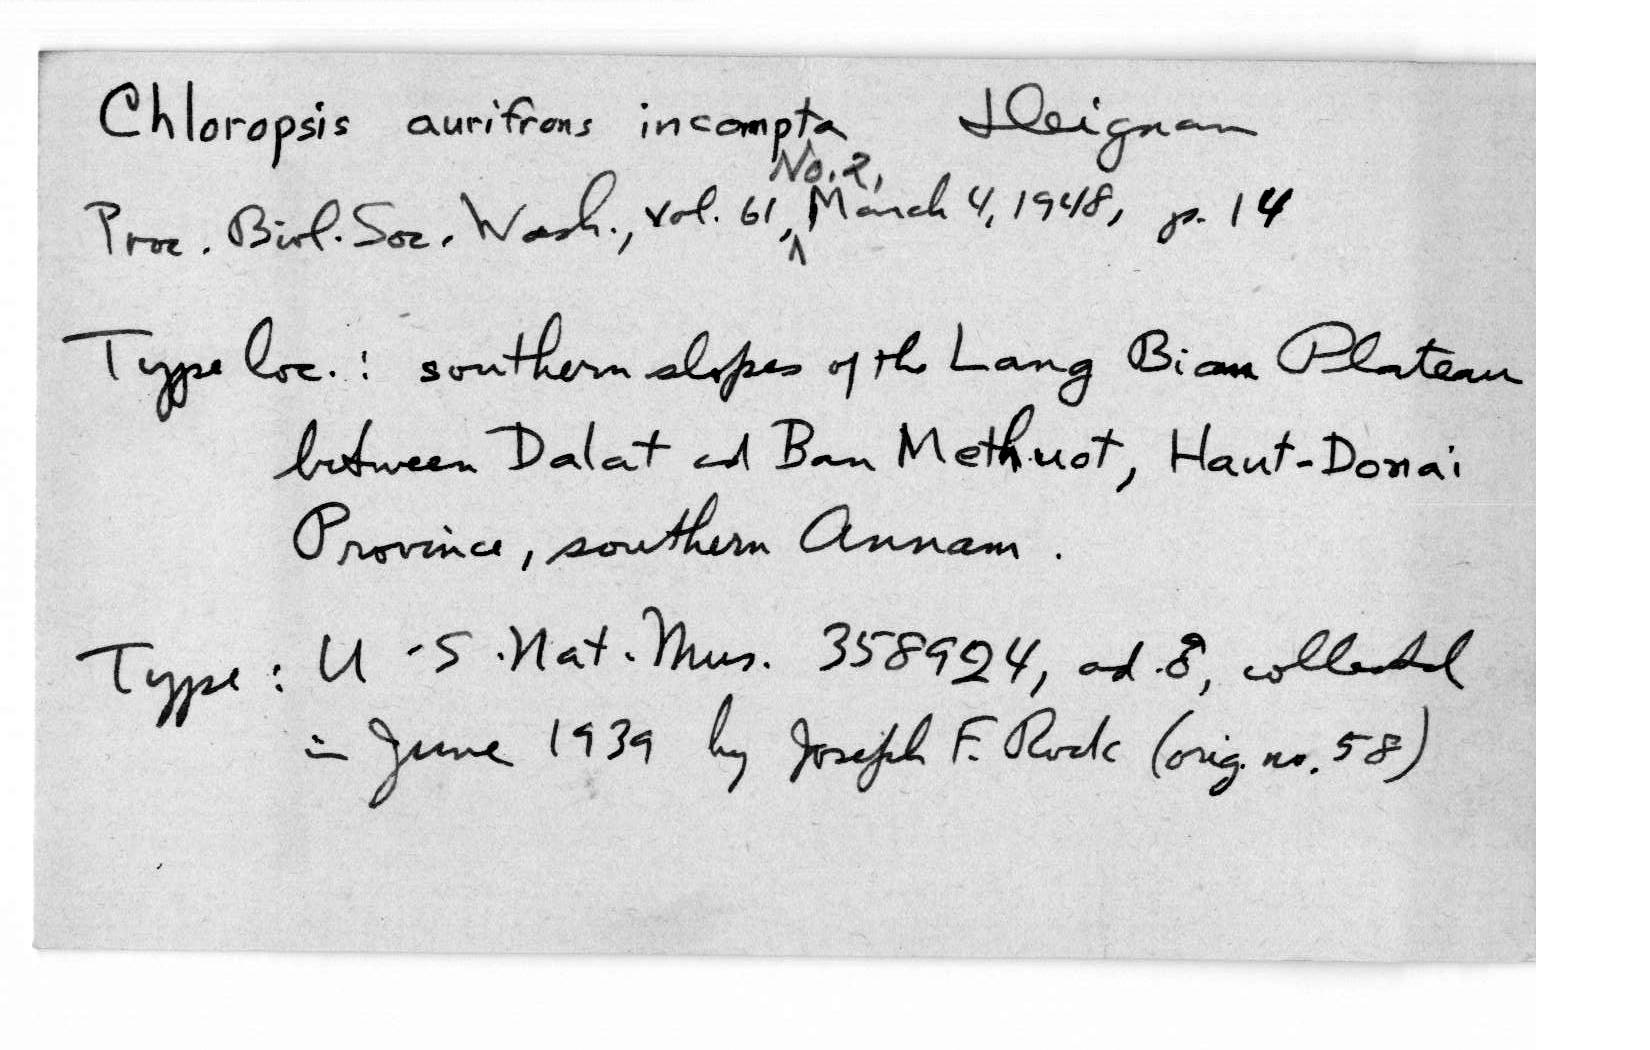 Chloropsis aurifrons incompta Deignan
Proc. Biol. Soc. Wash., vol. 61, No. 2, March 4, 1948, p. 14
Type loc.: southern slopes of the Lang Bian Plateau
between Dalat and Ban Methuot, Haut-Donai
Province, southern Annam.
Type: U.S. Nat. Mus. 358924, ad. ♂, collected
in June 1939 by Joseph F. Rock (orig. no. 58)